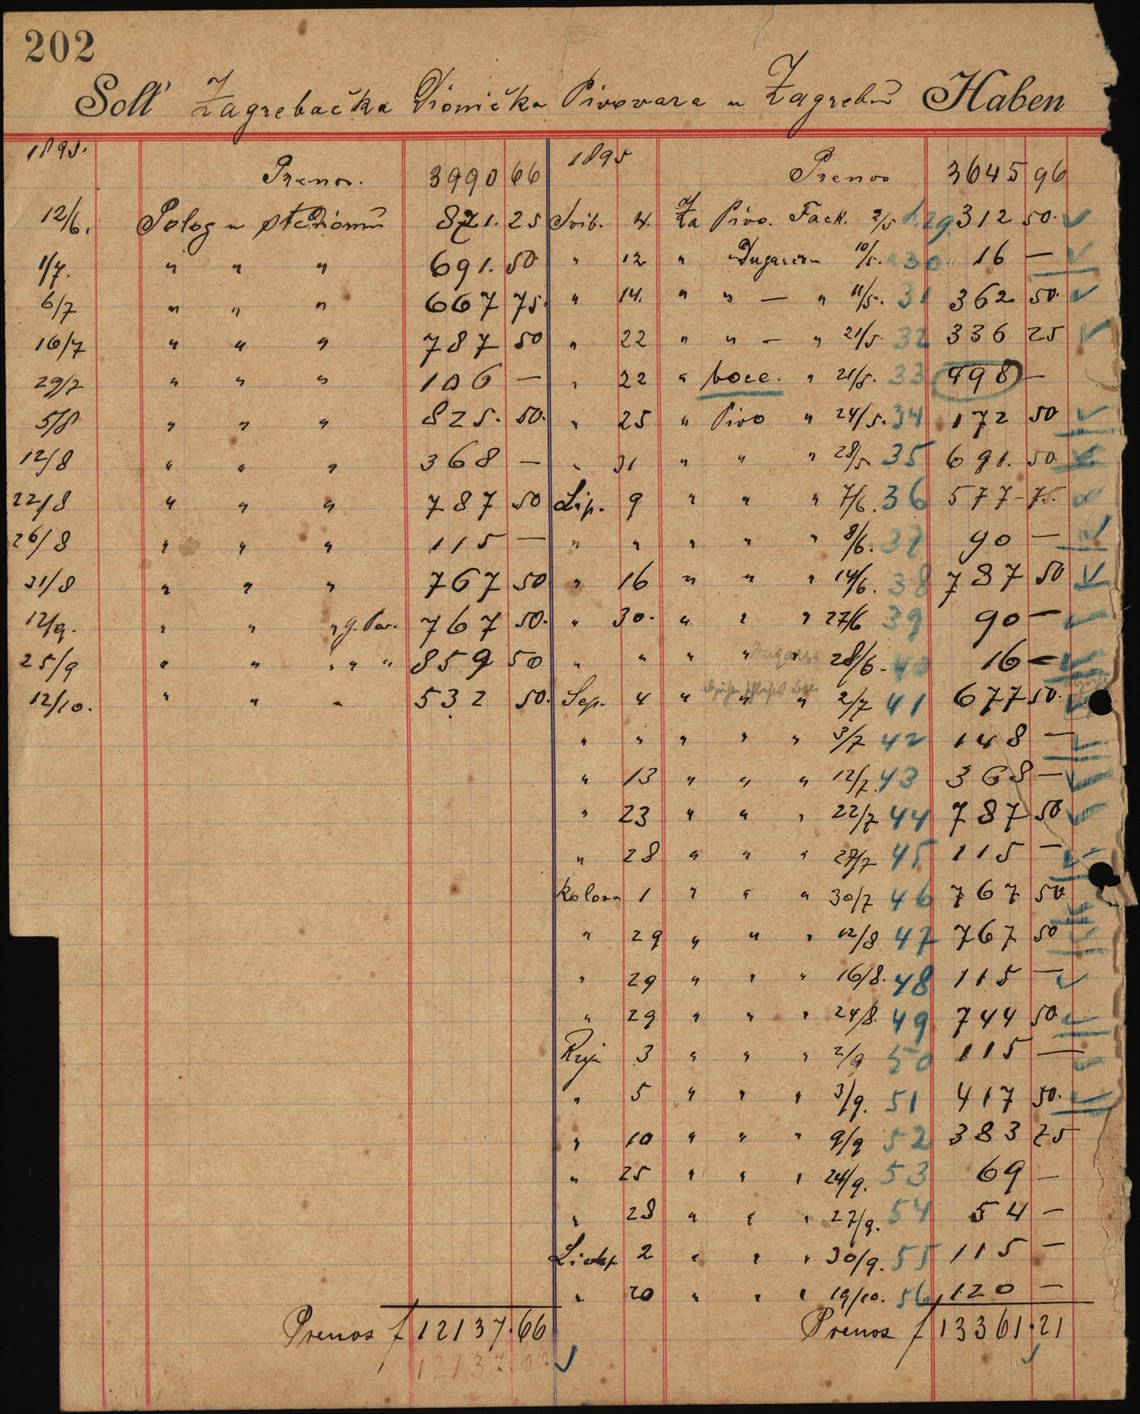 202
Soll Zagrebačka Dionička Pivovara u Zagrebu Haben
1895.
Prenos. 3990 66
12/6. Polog u štedionu 871. 25
1/7. " " " 691. 50
6/7 " " " 667 75.
16/7 " " " 787 50
29/7 " " " 106 —
5/8 " " " 825. 50.
12/8 " " " 368 —
22/8 " " " 787 50
26/8 " " " 115 —
31/8 " " " 767 50
12/9. " " " 767 50.
25/9 " " " " " 859 50
12/10. " " " 532 50.
Prenos f 12137.66
12137.66
1895
Prenos 3645 96
Svib. 4. Za Pivo. Fact. 2/5 29 312 50.
" 12 " 10/5. 30 16 —
" 14. " " — " 11/5. 31 362 50.
" 22 " " — " 21/5. 32 336 25
" 22 " boce. " 21/5. 33 498 —
" 25 " Pivo " 24/5. 34 172 50
" 31 " " " 28/5 35 691. 50
Lip. 9 " " " 7/6. 36 577 - 75.
" " " " " 8/6. 37 90 —
" 16 " " " 14/6. 38 787 50
" 30. " " " 27/6 39 90 —
" " " " " 28/6 - 40 16 —
Sep. 4 " " " 2/7 41 677 50.
" " " " " 3/7 42 148 —
" 13 " " " 12/7. 43 368 —
" 23 " " " 22/7 44 787 50
" 28 " " " 27/7 45 115 —
Kolova 1 " " " 30/7 46 767 50
" 29 " " " 12/8 47 767 50
" 29 " " " 16/8. 48 115 —
" 29 " " " 24/8. 49 744 50
Ruj 3 " " " 2/9 50 115 —
" 5 " " " 3/9. 51 417 50.
" 10 " " " 9/9 52 383 25
" 25 " " " 24/9. 53 69 —
" 28 " " " 27/9. 54 54 —
Listop 2 " " " 30/9. 55 115 —
" 20 " " " 19/10. 56 120 —
Prenos f 13361.21